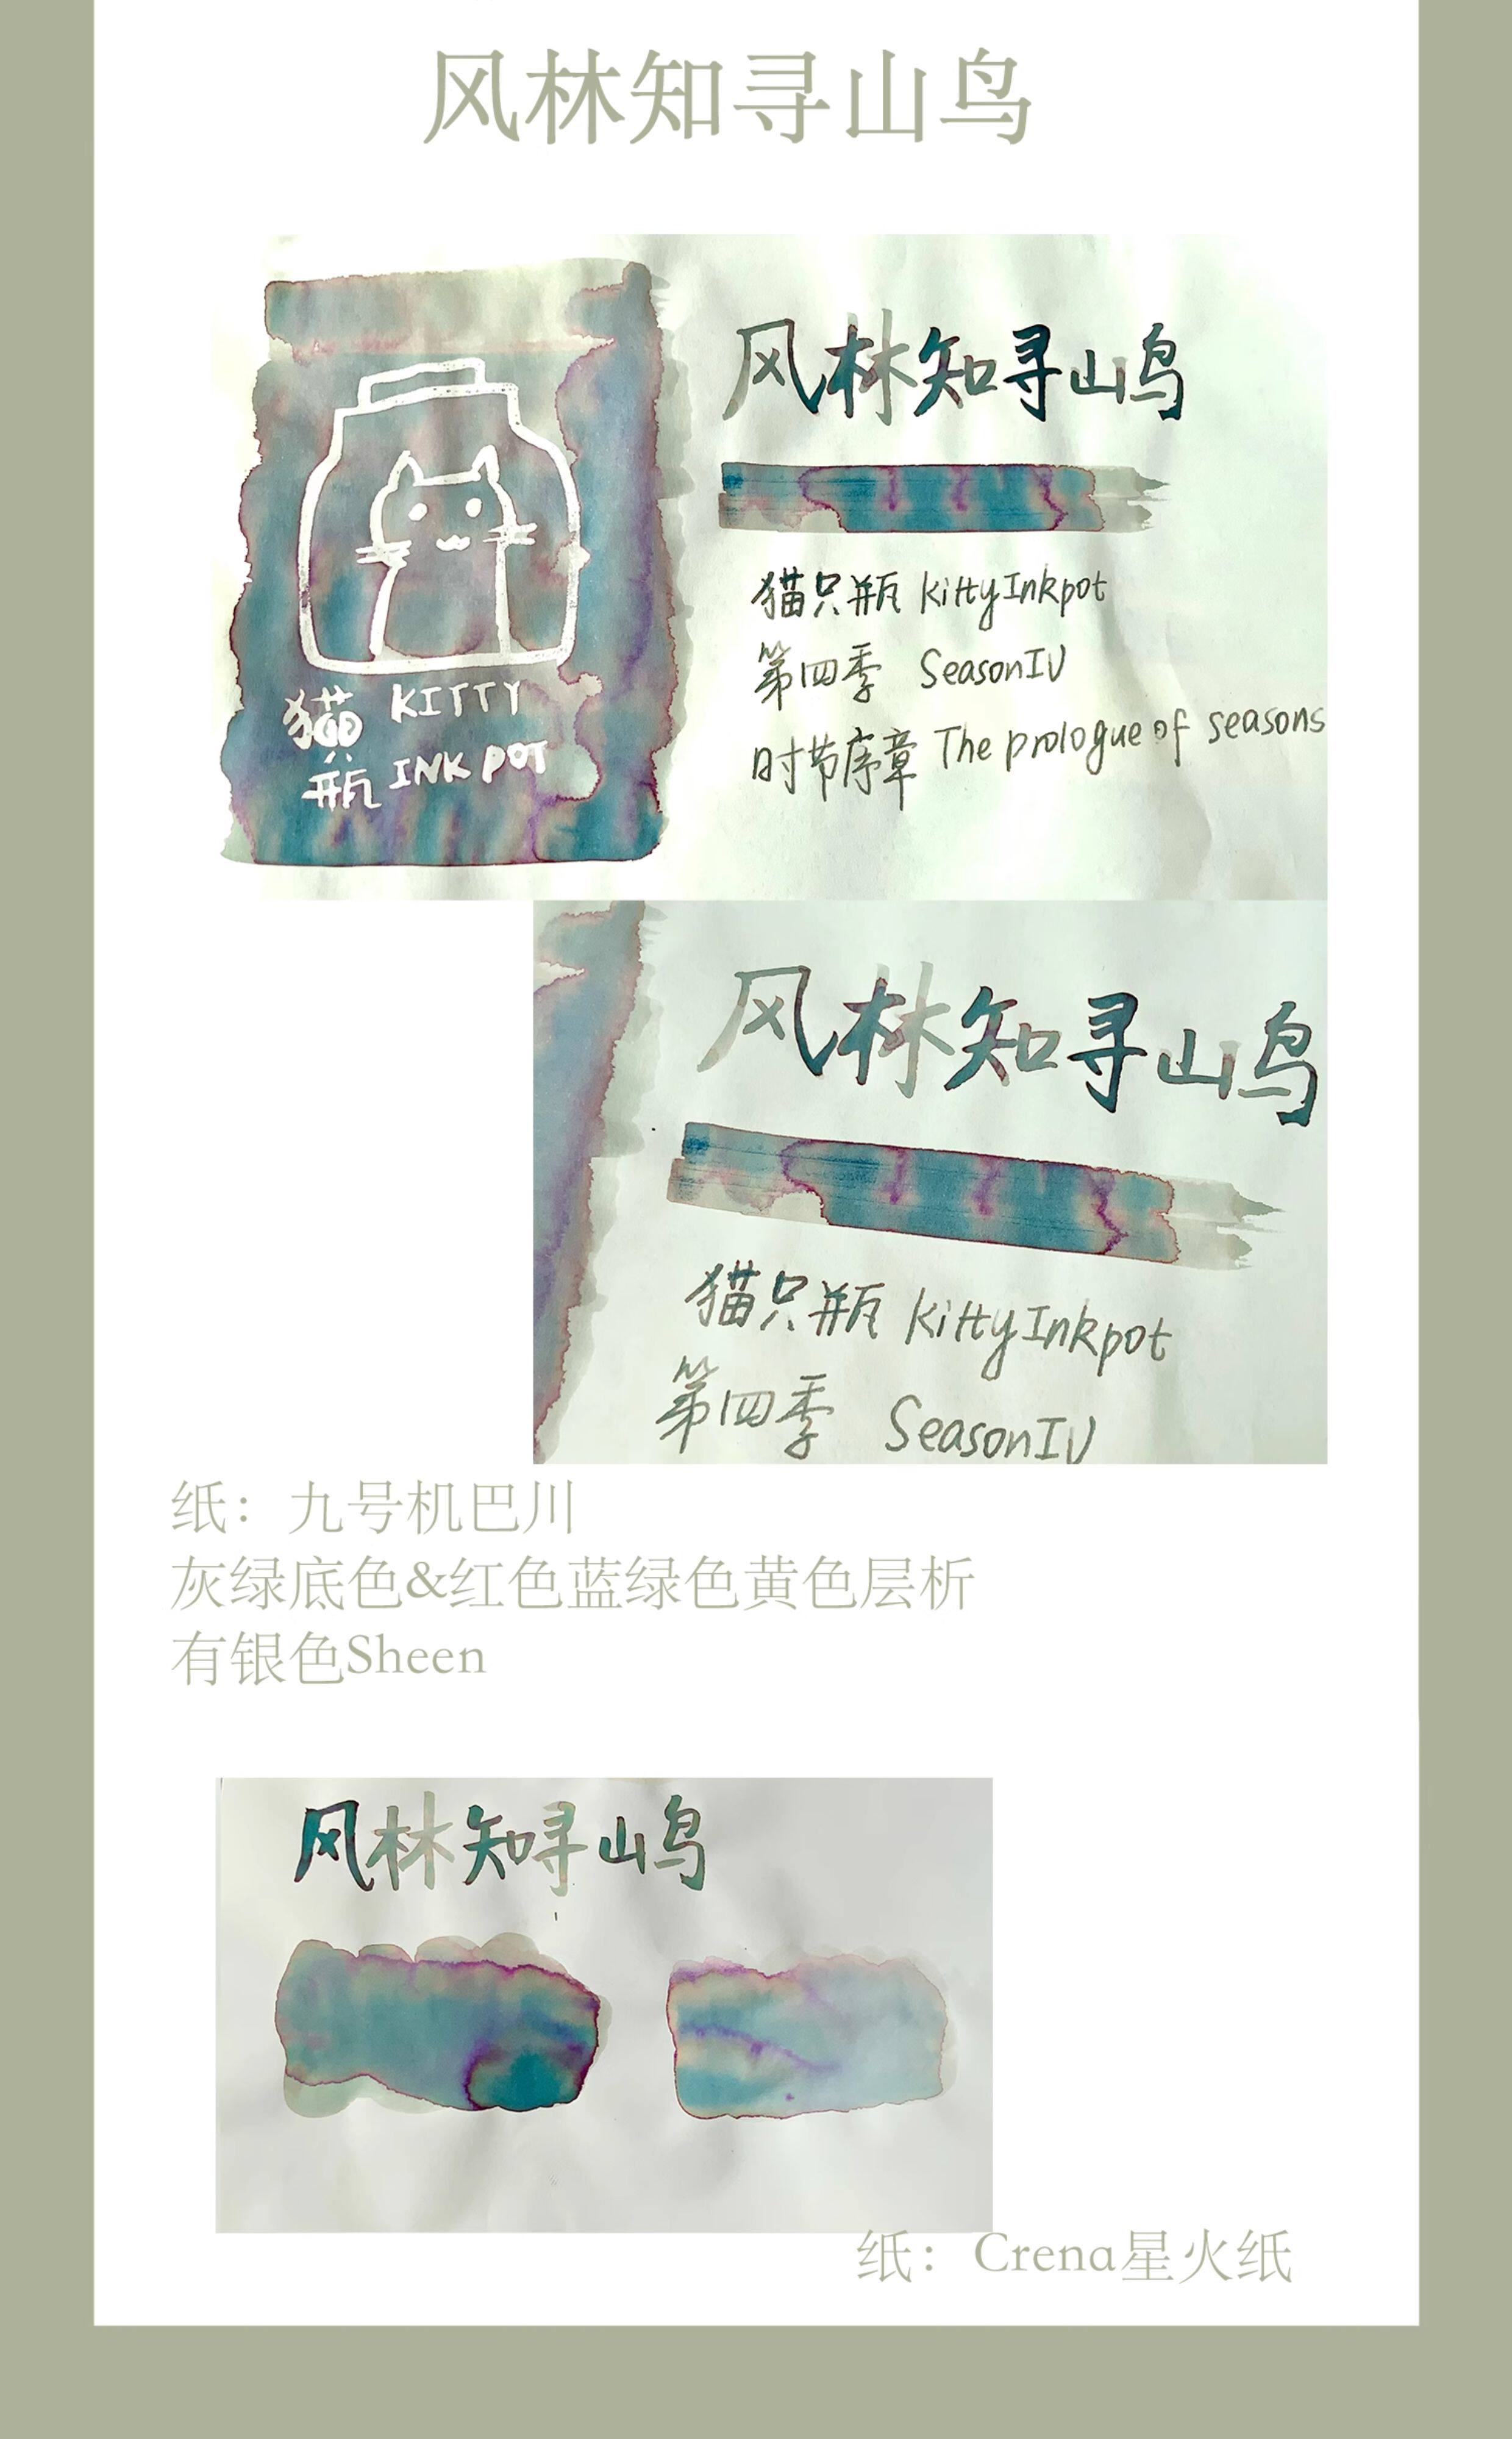 风林知寻山鸟
风林知寻山鸟
猫只瓶 KittyInkpot
第四季 SeasonIV
时节序章 The prologue of seasons
猫只瓶 KITTY
INK POT
风林知寻山鸟
猫只瓶 KittyInkpot
第四季 SeasonIV
纸：九号机巴川
灰绿底色&红色蓝绿色黄色层析
有银色Sheen
风林知寻山鸟
纸：Crena星火纸